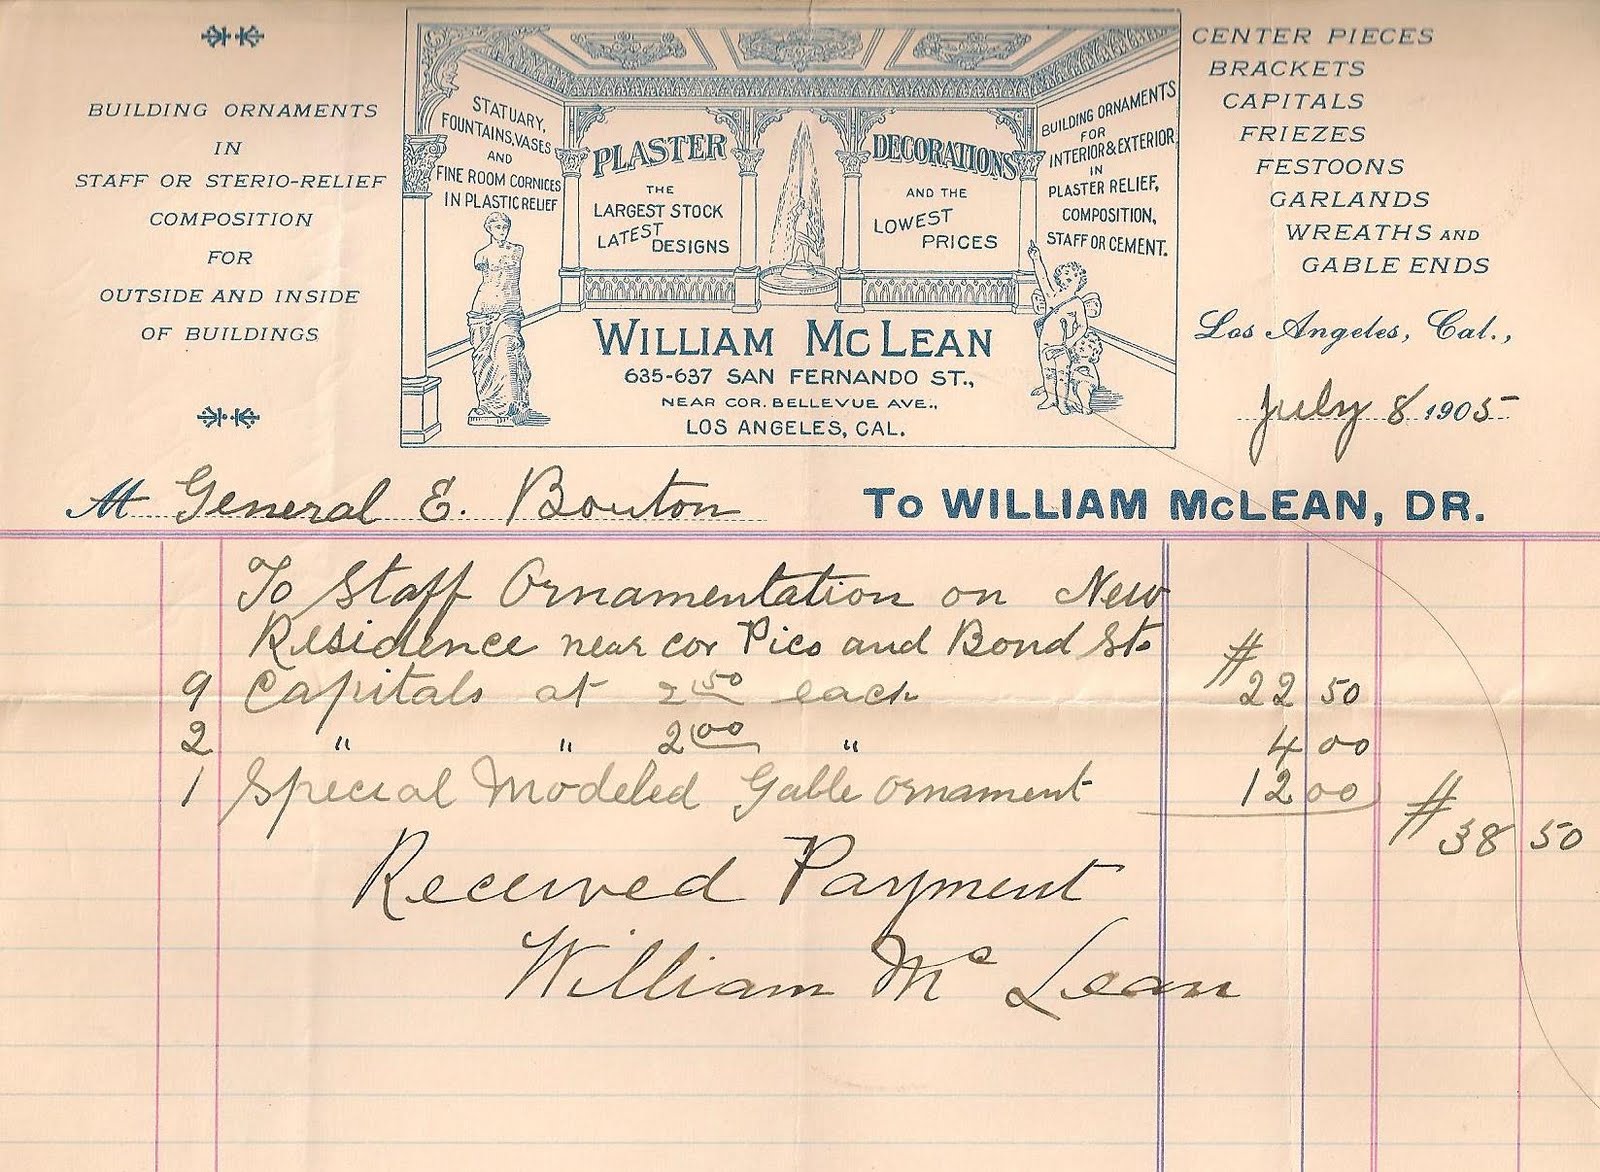 BUILDING ORNAMENTS
IN
STAFF OR STERIO-RELIEF
COMPOSITION
FOR
OUTSIDE AND INSIDE
OF BUILDINGS
STATUARY,
FOUNTAINS, VASES
AND
FINE ROOM CORNICES
IN PLASTIC RELIEF
PLASTER
THE
LARGEST STOCK
LATEST DESIGNS
DECORATIONS
AND THE
LOWEST
PRICES
BUILDING ORNAMENTS
FOR
INTERIOR & EXTERIOR
IN
PLASTER RELIEF,
COMPOSITION,
STAFF OR CEMENT.
WILLIAM McLEAN
635-637 SAN FERNANDO ST.,
NEAR COR. BELLEVUE AVE.,
LOS ANGELES, CAL.
CENTER PIECES
BRACKETS
CAPITALS
FRIEZES
FESTOONS
GARLANDS
WREATHS AND
GABLE ENDS
Los Angeles, Cal.,
July 8 1905
M General E. Bouton
To WILLIAM McLEAN, DR.
To Staff Ornamentation on New
Residence near cor Pico and Bond St.
9 Capitals at 2 50 each $22 50
2 " " 2 00 " 4 00
1 Special Modeled Gable Ornament 12 00
$38 50
Received Payment
William Mc Lean